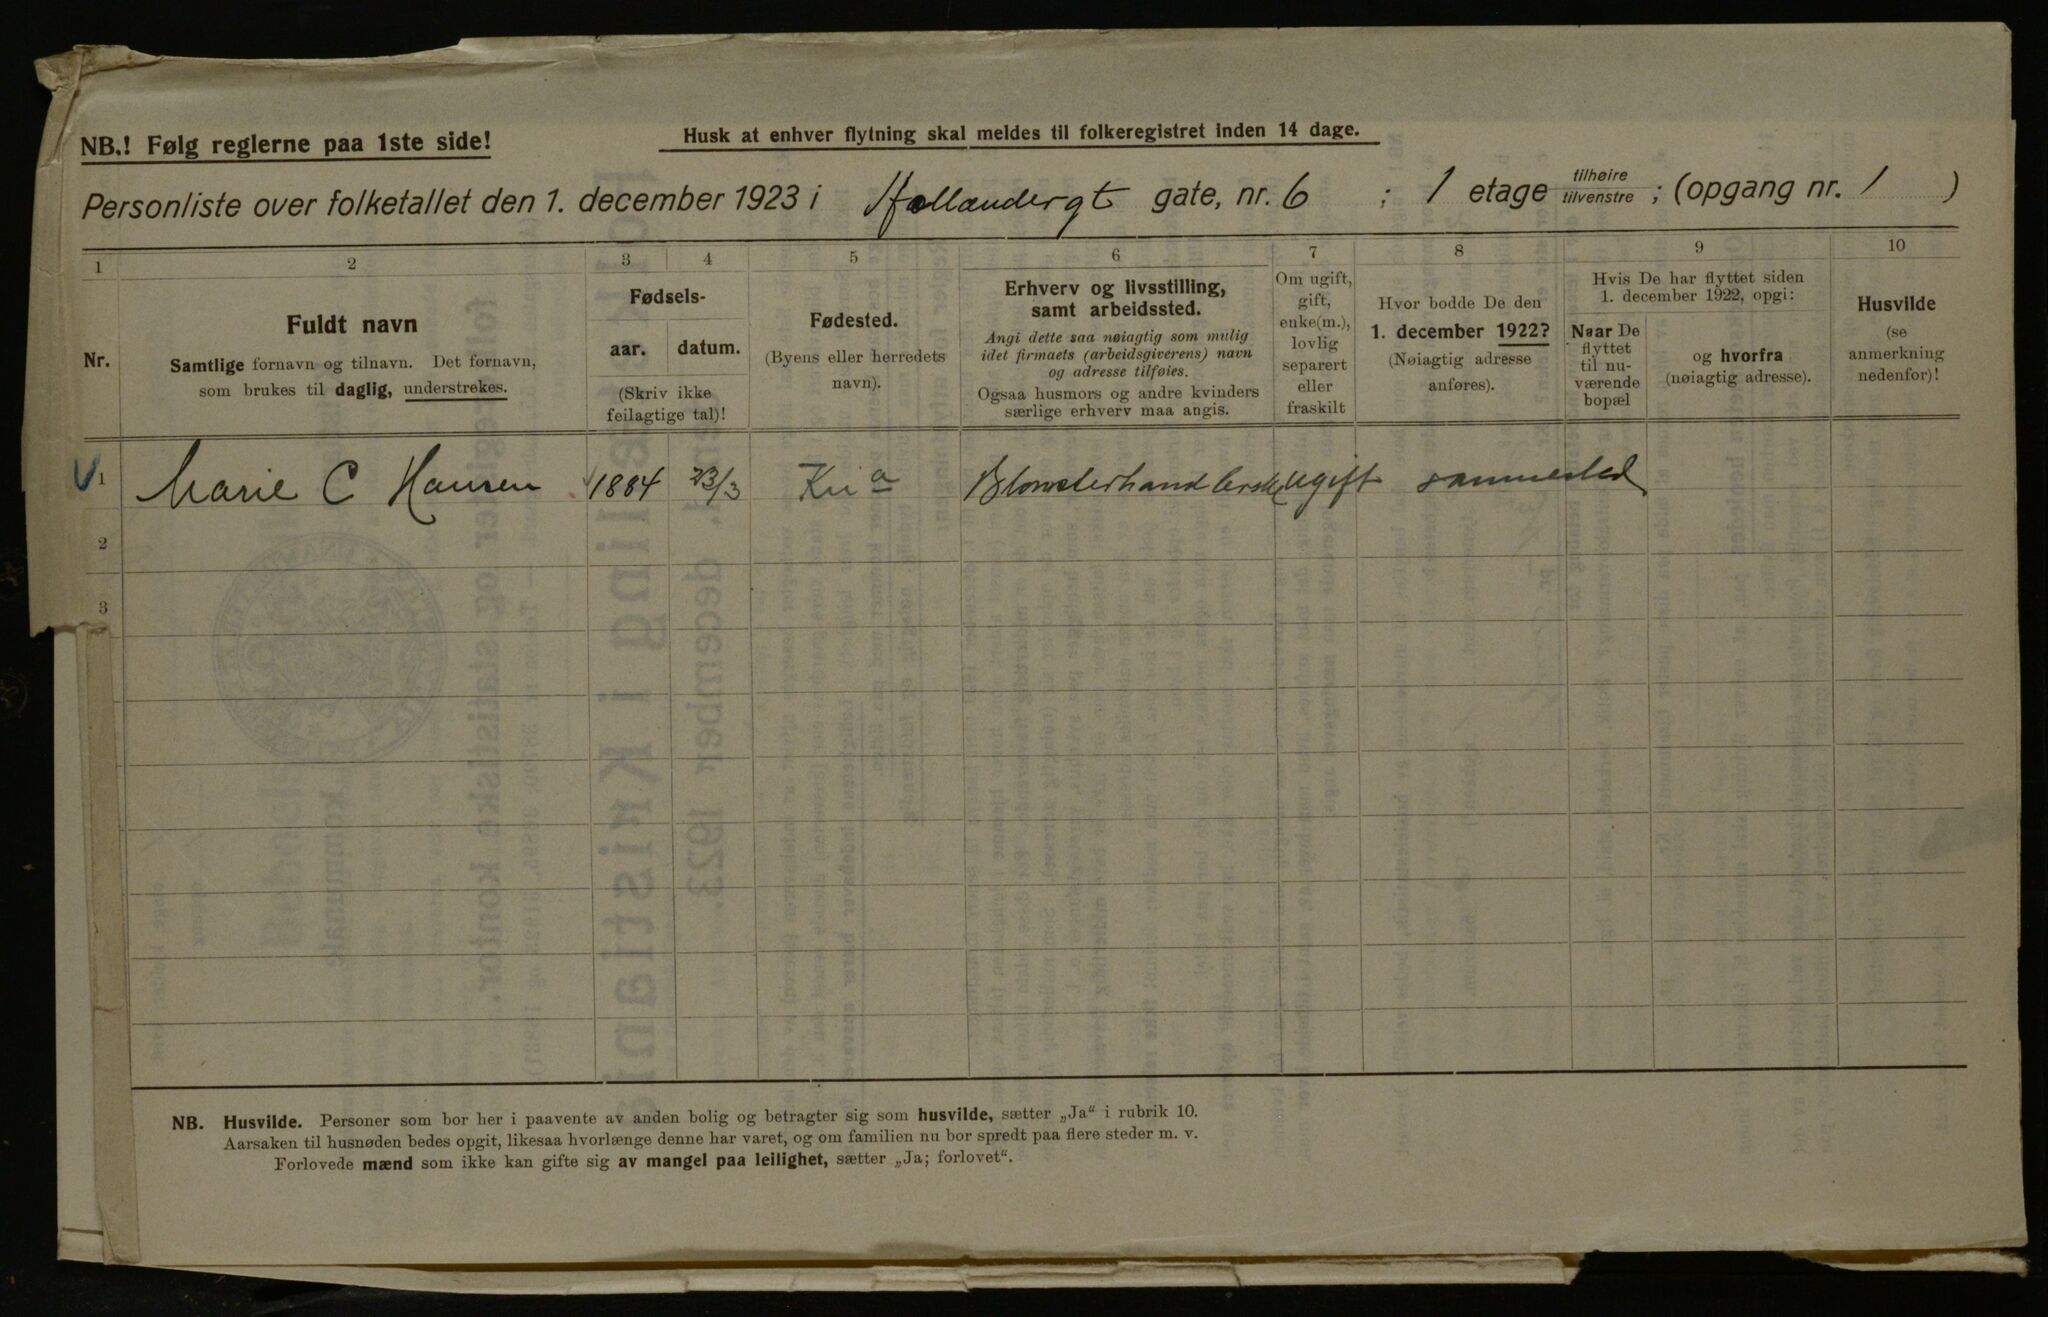 NB.! Følg reglerne paa 1ste side!
Husk at enhver flytning skal meldes til folkeregistret inden 14 dage.
Personliste over folketallet den 1. december 1923 i Hollændergt gate, nr. 6 ; 1 etage tilhøire tilvenstre ; (opgang nr. 1 )
1 2 3 4 5 6 7 8 9 10
Nr.
Fuldt navn
Samtlige fornavn og tilnavn. Det fornavn,
som brukes til daglig, understrekes.
Fødsels-
aar. datum.
(Skriv ikke
feilagtige tal)!
Fødested.
(Byens eller herredets
navn).
Erhverv og livsstilling,
samt arbeidssted.
Angi dette saa nøiagtig som mulig
idet firmaets (arbeidsgiverens) navn
og adresse tilføies.
Ogsaa husmors og andre kvinders
særlige erhverv maa angis.
Om ugift,
gift,
enke(m.),
lovlig
separert
eller
fraskilt
Hvor bodde De den
1. december 1922?
(Nøiagtig adresse
anføres).
Hvis De har flyttet siden
1. december 1922, opgi:
Naar De
flyttet
til nu-
værende
bopæl
og hvorfra
(nøiagtig adresse).
Husvilde
(se
anmerkning
nedenfor)!
1 Marie C Hansen 1884 23/3 Kria Blomsterhandlerske ugift sammested
2
3
NB. Husvilde. Personer som bor her i paavente av anden bolig og betragter sig som husvilde, sætter „Ja“ i rubrik 10.
Aarsaken til husnøden bedes opgit, likesaa hvorlænge denne har varet, og om familien nu bor spredt paa flere steder m. v.
Forlovede mænd som ikke kan gifte sig av mangel paa leilighet, sætter „Ja; forlovet“.